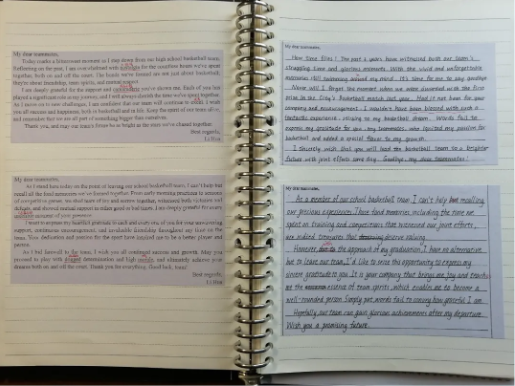 My dear teammates,
Today marks a bittersweet moment as I step down from our high school basketball team.
Reflecting on the past, I am overwhelmed with for the countless hours we've spent
together, both on and off the court. The bonds we've formed are not just about basketball;
they're about friendship, team spirit, and mutual support.
I am deeply grateful for the support and you've shown me. Each of you has
played a significant role in my journey, and I will always cherish the time we've spent together.
As I move on to new challenges, I am confident that our team will continue to I wish you
all success and happiness, both in basketball and in life. Keep the spirit of our team alive,
and remember that we are all part of something bigger than ourselves.
Thank you, and may our team's future be as bright as the times we've shared together.
Best regards,
Li Hua
My dear teammates,
As I stand here today on the point of leaving our high school basketball team, I can't help but
recall all the fond memories we've formed together. From early morning practices to
of competitive games, we shed tears of joy and sorrow together, witnessed both victories and
defeats, and showed mutual support in times good or bad. I am deeply grateful for
moment of your presence.
I want to express my heartfelt gratitude to each and every one of you for your unwavering
support, continuous encouragement, and invaluable friendship throughout my time on the
team. Your dedication and passion for the sport have inspired me to be a better player and
person.
As I bid farewell to the team, I wish you all continued success and growth. May you
proceed to play with determination and high and ultimately achieve your
dreams both on and off the court. Thank you for everything. Good luck, team!
Best regards,
Li Hua
My dear teammates,
How time flies! The past 2 years have witnessed both our team's
struggling time and glorious moments. With the vivid and unforgettable
memories still swimming around my mind, it's time for me to say goodbye.
Never will I forget the moment when we were awarded with the first
prize in the City's Basketball match last year. Had it not been for your
company and encouragement, I wouldn't have been blessed with such a
fantastic experience, clinging to my basketball dream. Words fail to
express my gratitude for you, my teammates, who ignited my passion for
basketball and added a special flavor to my growth.
I sincerely wish that you will lead the basketball team to a brighter
future with joint efforts some day. Goodbye, my dear teammates!
My dear teammates,
As a member of our school basketball team, I can't help recalling
our precious experiences. I have fond memories, including the time we
spent on training and competitions that witnessed our joint efforts,
are indeed treasures that deserve valuing.
However, the approach of my graduation, I have no alternative
but to leave our team. I'd like to seize this opportunity to express my
sincere gratitude to you. It is your company that brings me joy and teaches
me the essence of team spirits, which enable me to become a
well-rounded person. Simply put, words fail to convey how grateful I am.
Hopefully, our team can gain glorious achievements after my departure.
Wish you a promising future.